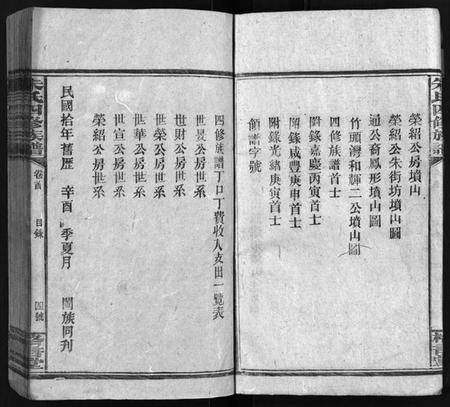 榮紹公房墳山
榮紹公朱街坊墳山圖
通公裔鳳形墳山圖
竹頭灣和輝二公墳山圖
四修族譜首士
附錄嘉慶丙寅首士
附錄咸豐庚申首士
附錄光緒庚寅首士
領譜字號
四修族譜丁口丁費收入支出一覽表
世旻公房世系
世財公房世系
世榮公房世系
世華公房世系
世宣公房世系
榮紹公房世系
民國拾年舊歷 辛酉 季夏月 闔族同刋
朱氏四修族譜
卷首
目錄
四號